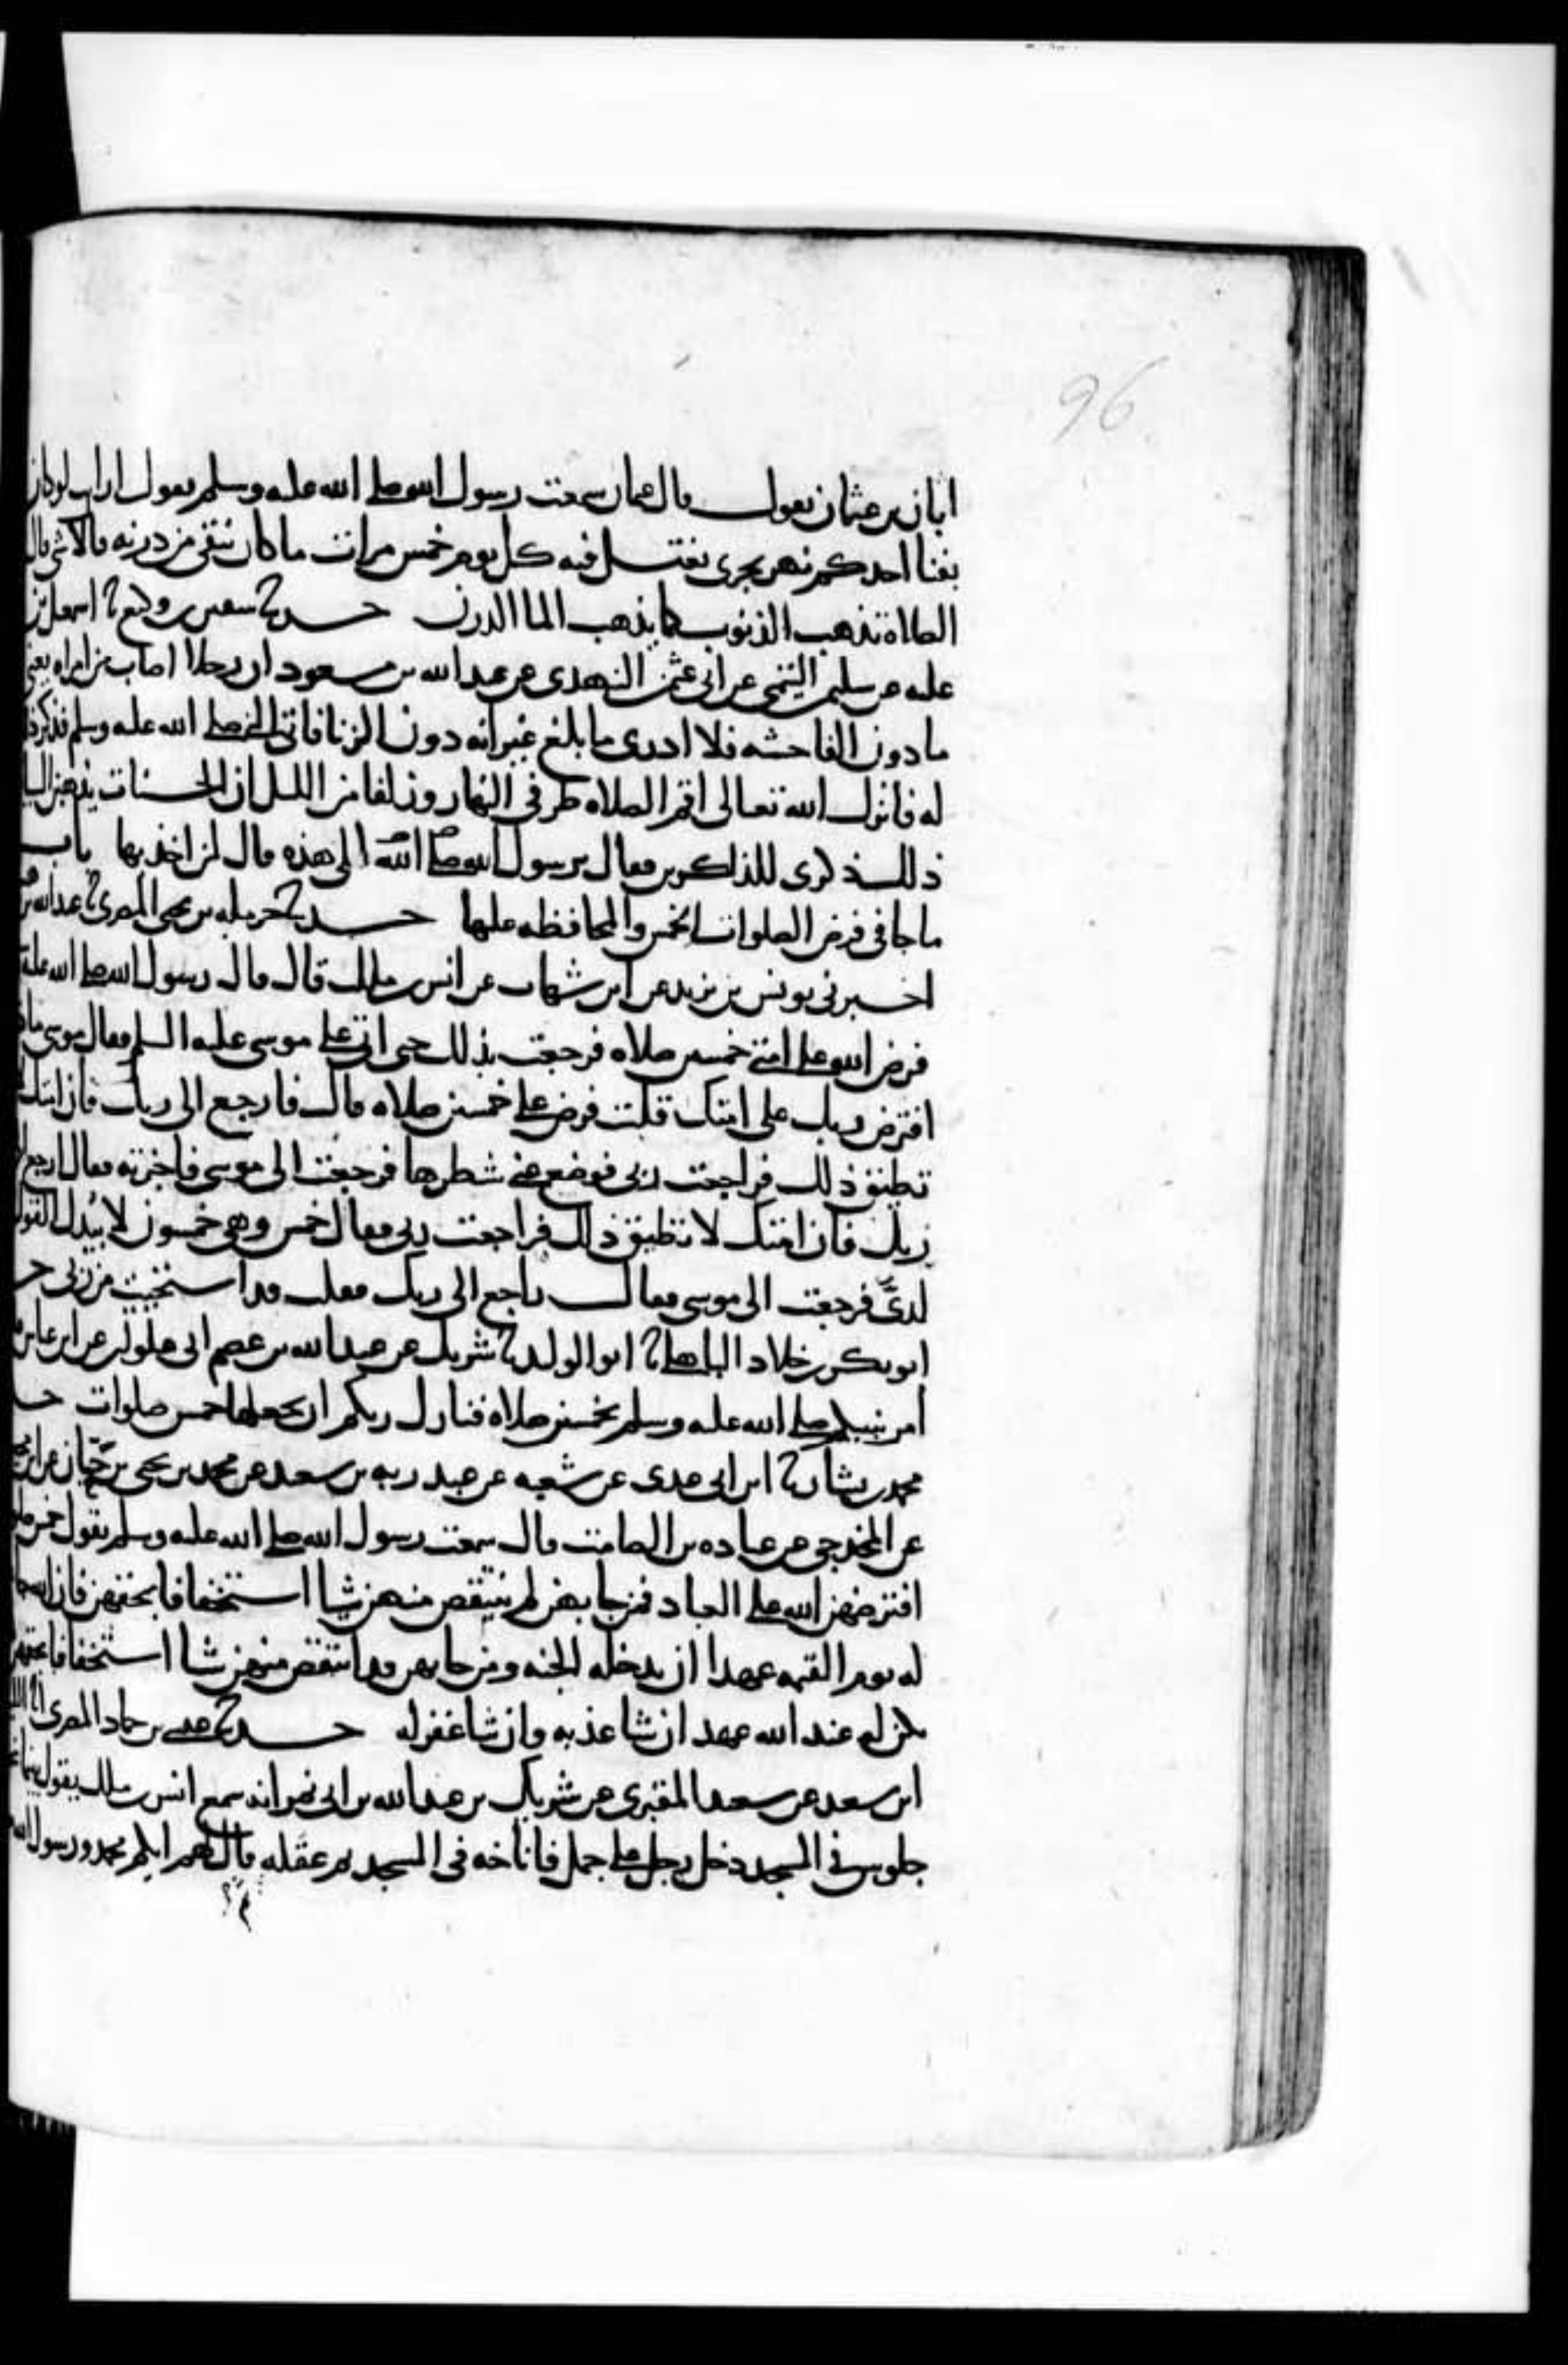 96
ابان بن عثمان يقول قال عثمان سمعت رسول الله صلى الله عليه وسلم يقول ارايت لو كان
بفنا احدكم نهر يجري يغتسل فيه كل يوم خمس مرات ما كان يبقى من درنه قال لا شي قال
الصلاه تذهب الذنوب كما يذهب الما الدرن حدثنا سفين بن وكيع ثنا اسمعيل بن
عليه عن سليمن التيمي عن ابي عثمن النهدي عن عبد الله بن مسعود ان رجلا اصاب من امراه يعني
ما دون الفاحشه فلا ادري ما بلغ غير انه دون الزنا فاتى النبي صلى الله عليه وسلم فذكر ذلك
له فانزل الله تعالى اقم الصلاه طرفي النهار وزلفا من الليل ان الحسنات يذهبن السيا
ذلك ذكرى للذاكرين فقال يرسول الله صلى الله الي هذه قال لمن اخذ بها باب
ما جا في فرض الصلوات الخمس والمحافظه عليها حدثنا حرمله بن يحيى المصري ثنا عبد الله بن
اخبرني يونس بن يزيد عن ابن شهاب عن انس بن ملك قال قال رسول الله صلى الله عليه
فرض الله على امتي خمسين صلاه فرجعت بذلك حتى اتي على موسى عليه السلم فقال موسى ماذا
افترض ربك على امتك قلت فرض علي خمسين صلاه قال فارجع الى ربك فان امتك لا
تطيق ذلك فراجعت ربي فوضع عني شطرها فرجعت الى موسى فاخبرته فقال ارجع
ربك فان امتك لا تطيق ذلك فراجعت ربي فقال خمس وهي خمسون لا يبدل القول
لديّ فرجعت الى موسى فقال راجع الى ربك فقلت قد استحييت من ربي حد
ابو بكر بن خلاد الباهلي ثنا ابو الوليد ثنا شريك عن عبد الله بن عصم ابي علوان عن ابن عباس
امر نبيكم صلى الله عليه وسلم بخمسين صلاه فنازل ربكم ان يجعلها خمس صلوات حد
محمد بن بشار ثنا ابن ابي عدي عن شعبه عن عبد ربه بن سعيد عن محمد بن يحيى بن حبّان عن ابن محيـ
عن المخدجي عن عباده بن الصامت قال سمعت رسول الله صلى الله عليه وسلم يقول خمس صلو
افترضهن الله على العباد فمن جا بهن لم ينتقص منهن شيا استخفافا بحقهن فان الله جا
له يوم القيمه عهدا ان يدخله الجنه ومن جا بهن قد انتقص منهن شيا استخفافا بحقهن
يكن له عند الله عهد ان شا عذبه وان شا غفر له حدثنا عيسى بن حماد المصري انا الليث
ابن سعد عن سعيد المقبري عن شريك بن عبد الله بن ابي نمر انه سمع انس بن ملك يقول بينما نحن
جلوس في المسجد دخل رجل على جمل فاناخه في المسجد ثم عقله قال لهم ايكم محمد ورسول الله